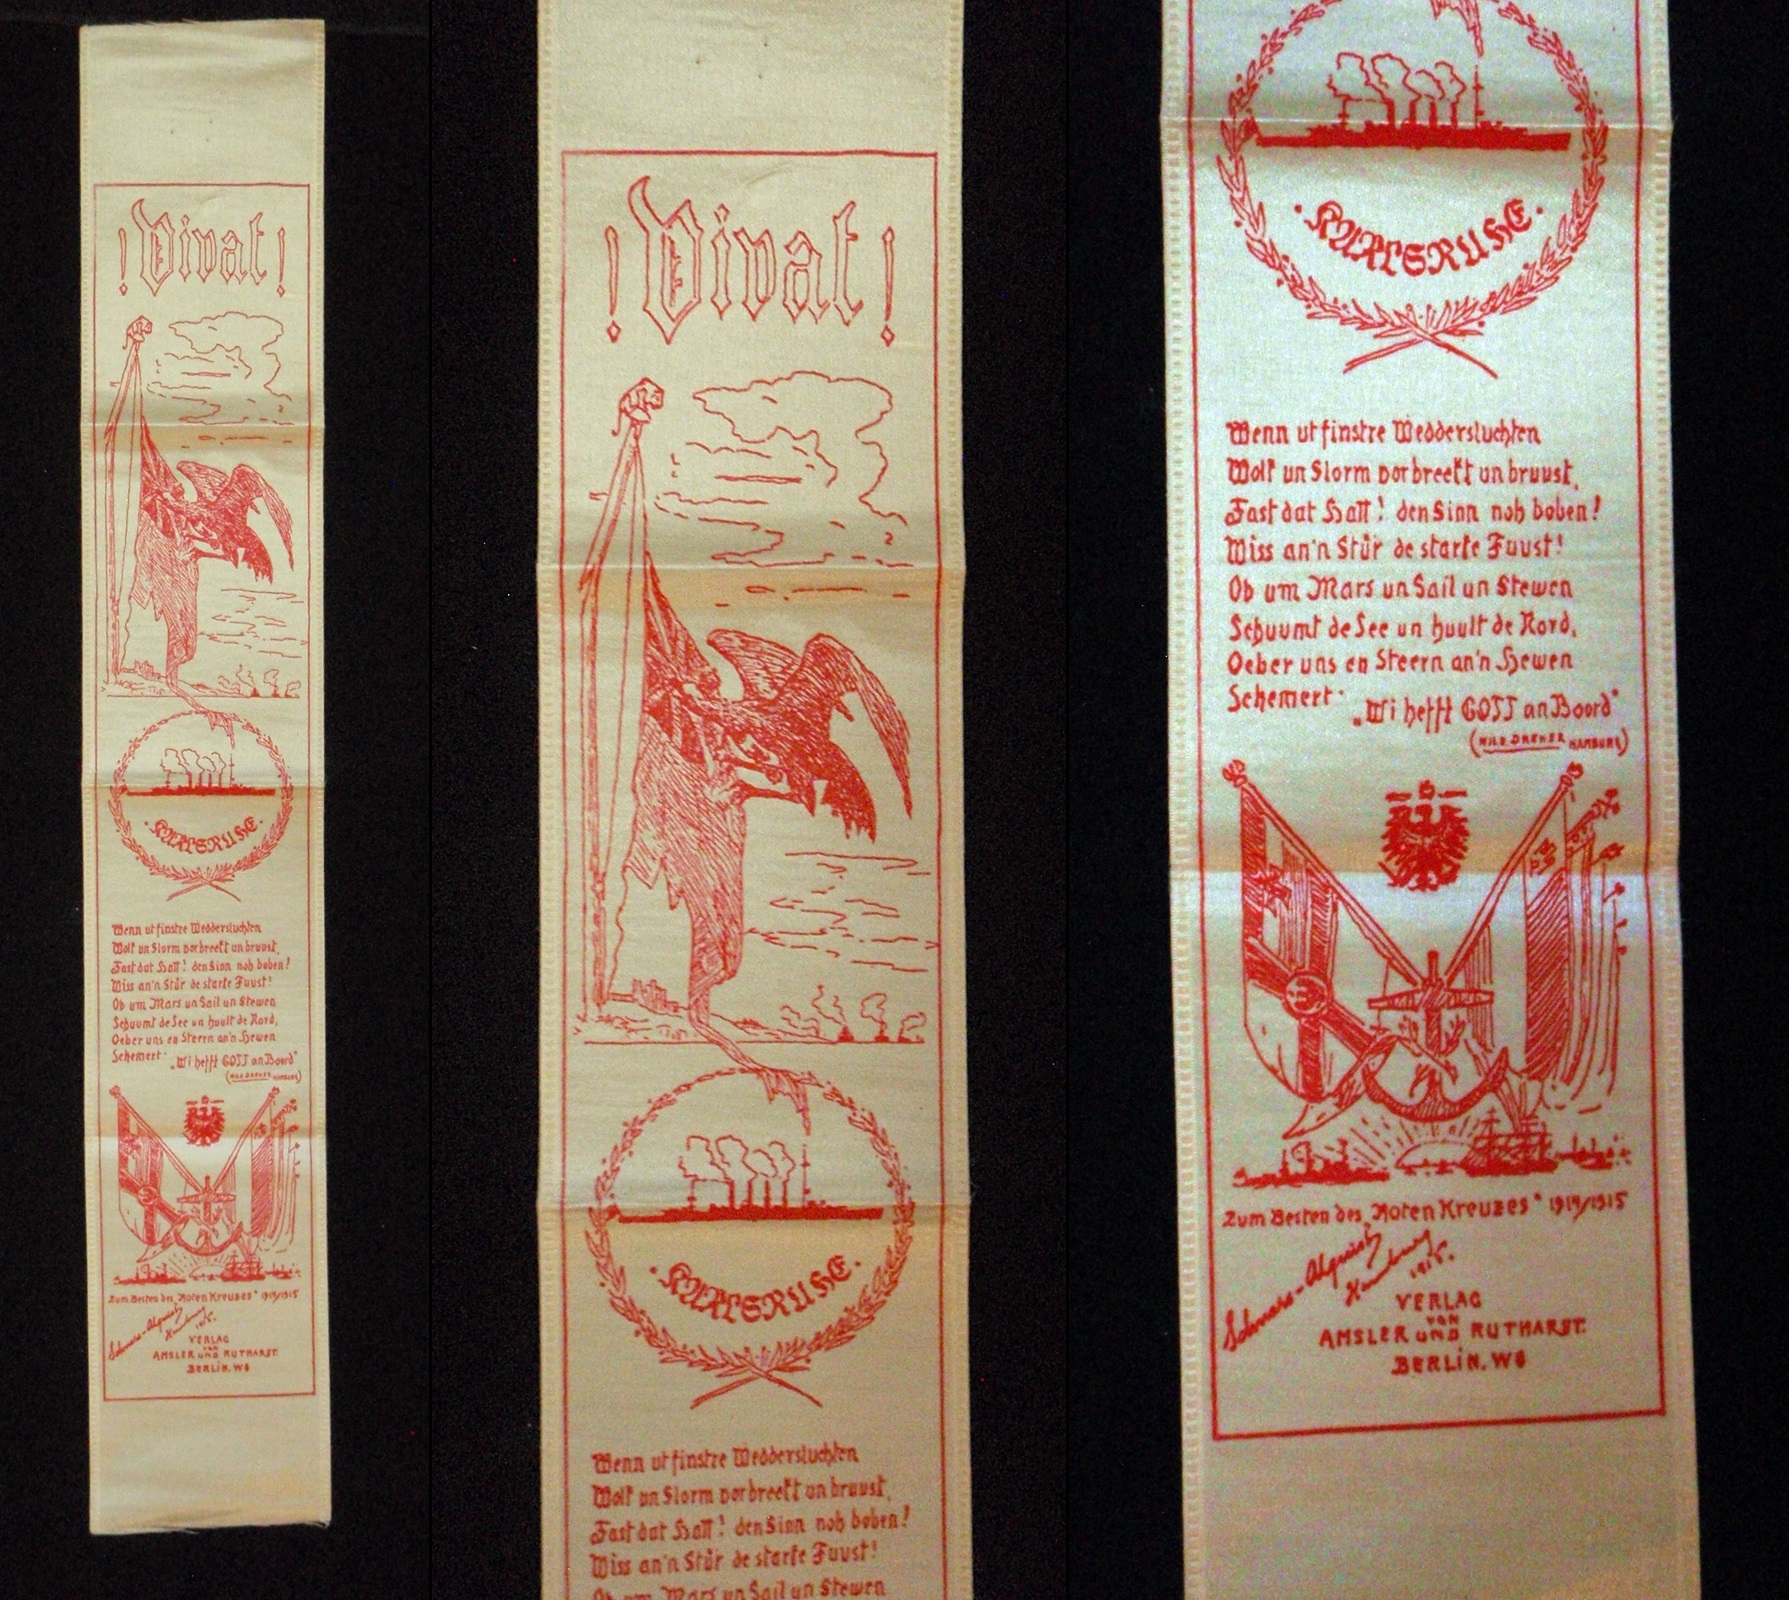 ! Vivat !
· KARLSRUHE ·
Wenn ut finstre Weddersluchten
Wolk un Storm vorbreekt un bruust,
Fast dat Hatt! den Sinn noh boben!
Wiss an'n Stür de starke Fuust!
Ob um Mars un Sail un Stewen
Schuumt de See un huult de Nord,
Oeber uns en Steern an'n Hewen
Schemert· „Wi hefft GOTT an Boord"
HAMBURG)
Zum Besten des „Roten Kreuzes" 1914/1915
Hamburg
1915.
VERLAG
VON
AMSLER UND RUTHARDT.
BERLIN. W8
! Vivat !
· KARLSRUHE ·
Wenn ut finstre Weddersluchten
Wolk un Storm vorbreekt un bruust,
Fast dat Hatt! den Sinn noh boben!
Wiss an'n Stür de starke Fuust!
Ob um Mars un Sail un Stewen
· KARLSRUHE ·
Wenn ut finstre Weddersluchten
Wolk un Storm vorbreekt un bruust,
Fast dat Hatt! den Sinn noh boben!
Wiss an'n Stür de starke Fuust!
Ob um Mars un Sail un Stewen
Schuumt de See un huult de Nord,
Oeber uns en Steern an'n Hewen
Schemert· „Wi hefft GOTT an Boord"
HAMBURG)
Zum Besten des „Roten Kreuzes" 1914/1915
Hamburg
1915.
VERLAG
VON
AMSLER UND RUTHARDT.
BERLIN. W8